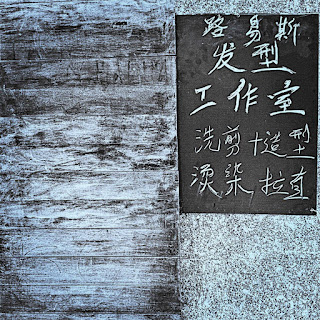 路易斯
发型
工作室
洗剪+造型
烫染拉直